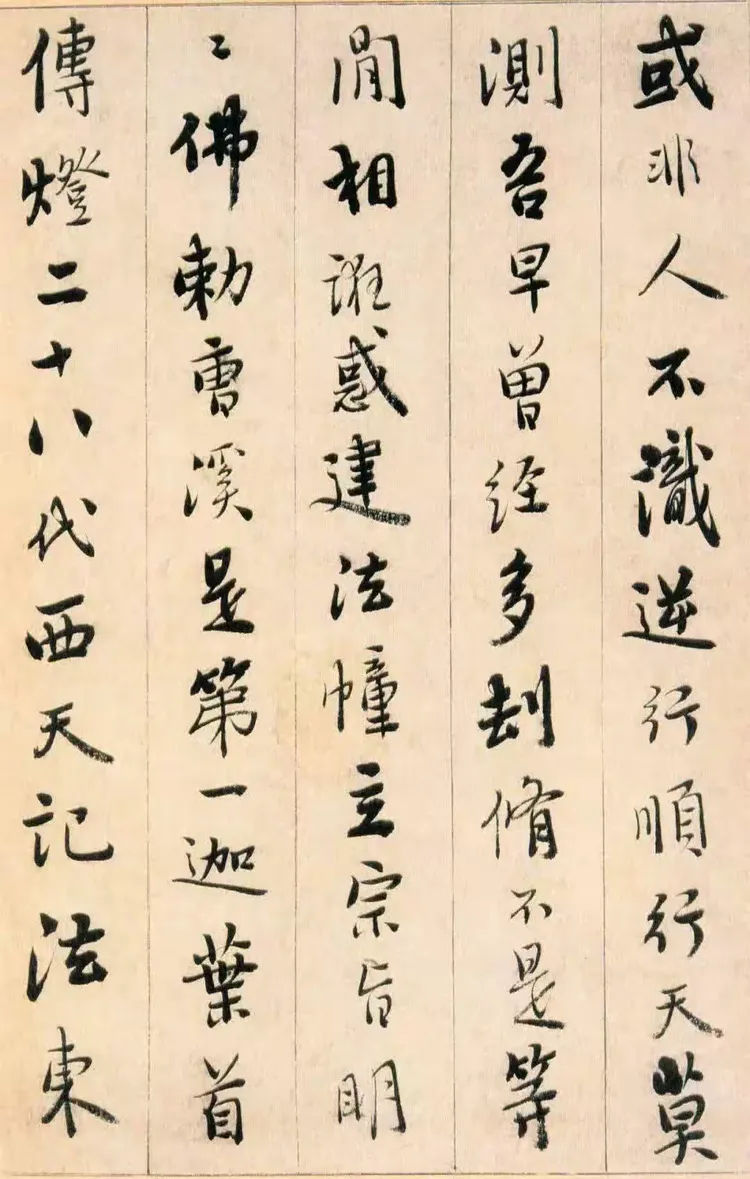 或非人不識逆行順行天莫
測吾早曾経多刧脩不是等
閒相誑惑建法幢立宗旨明
〻佛勅曹溪是第一迦葉首
傳燈二十八代西天記法東